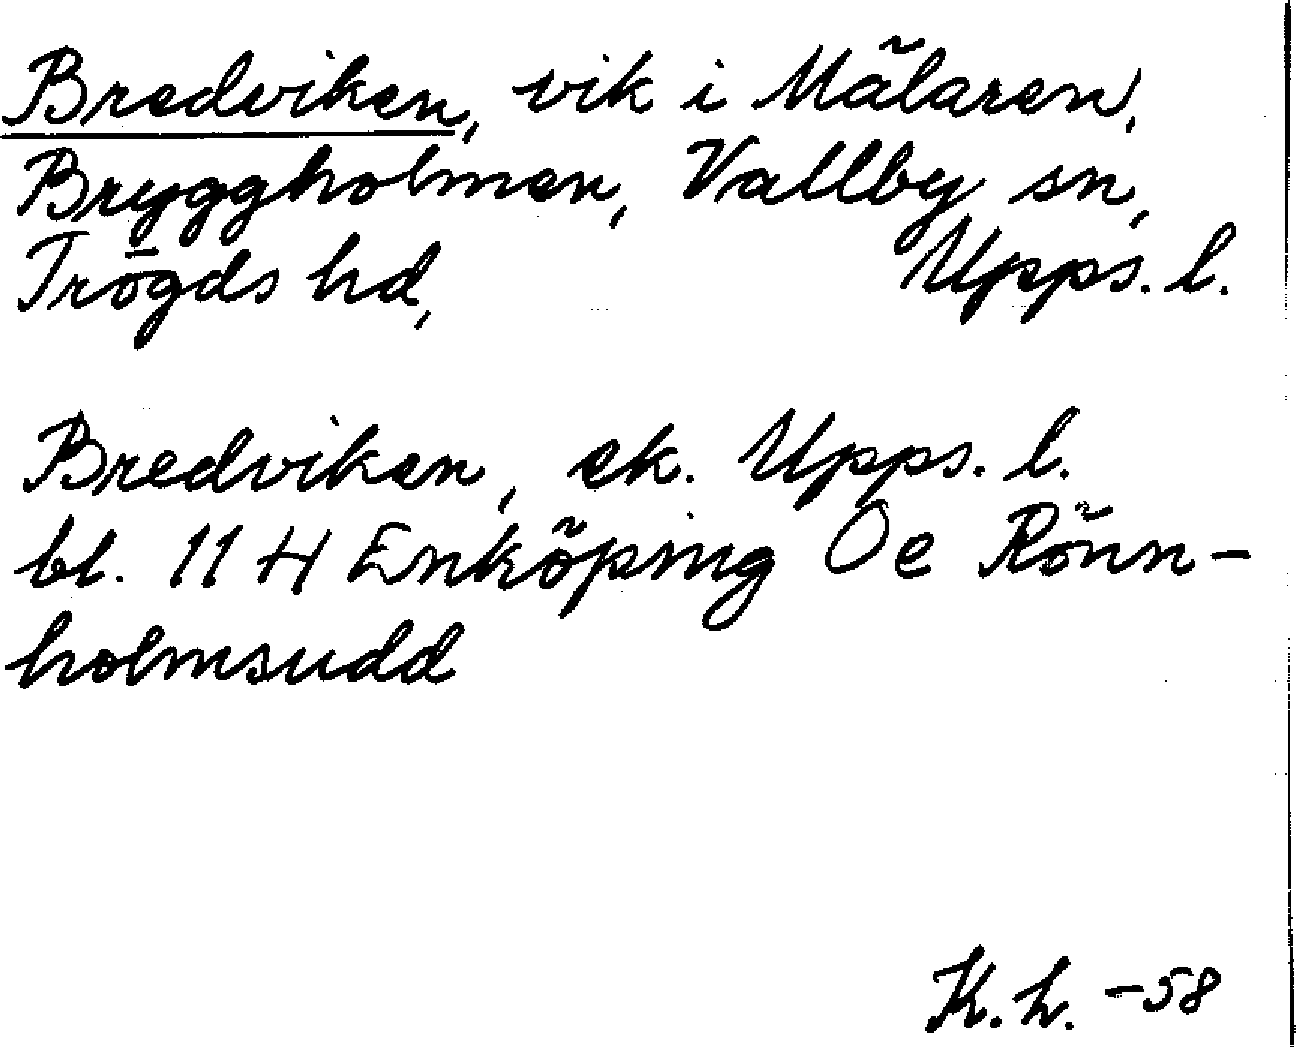 Bredviken, vik i Mälaren,
Bryggholmen, Vallby sn,
Trögds hd, Upps. l.
Bredviken, ek. Upps. l.
bl. 11 H Enköping Öe Rönn-
holmsudd
K. h. -58